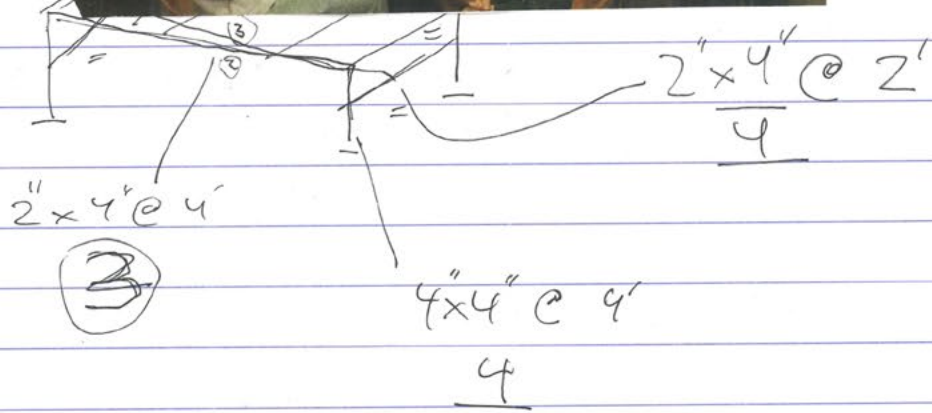 3
2
2"x4" @ 2'
4
2"x4' @ 4'
3
4"x4" @ 4'
4